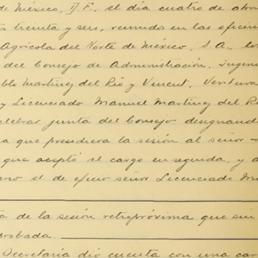 de México, D.F. el día cuatro de
treinta y seis, reunido en las oficin
Agrícola del Norte de México, S.A. los
del Consejo de Administración, Ingen
Pablo Martínez del Río y Vinent, Ventura
y Licenciado Manuel Martínez del Río
celebrar junta del Consejo designando
a que presidiera la sesión al señor
que aceptó el cargo en seguida, y a
el de oficio señor Licenciado
de la sesión retropróxima que sin
probada.
Secretaría dió cuenta con una car